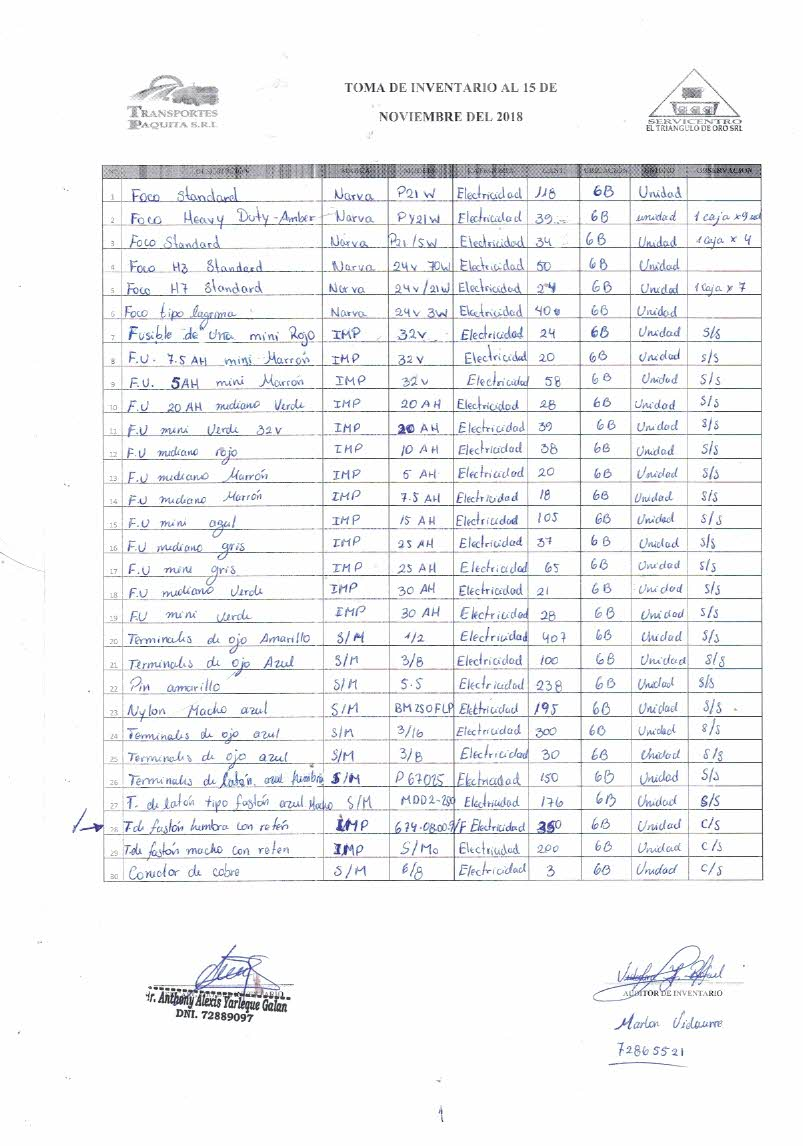 TRANSPORTES
PAQUITA S.R.L
TOMA DE INVENTARIO AL 15 DE
NOVIEMBRE DEL 2018
SERVICENTRO
EL TRIANGULO DE ORO SRL
N° DESCRIPCIÓN MARCA MODELO CATEGORIA CANT. UBICACIÓN UNIDAD OBSERVACION
1 Foco Standard Narva P21 W Electricidad 118 6B Unidad
2 Foco Heavy Duty-Amber Narva PY21W Electricidad 39 6B unidad 1 caja x9
3 Foco Standard Narva P21/5W Electricidad 34 6B Unidad 1 caja x 4
4 Foco H3 Standard Narva 24v 70W Electricidad 50 6B Unidad
5 Foco H7 Standard Narva 24v/21W Electricidad 6B Unidad 1 caja x 7
6 Foco tipo lagrima Narva 24v 3W Electricidad 400 6B Unidad
7 Fusible de una mini Rojo IMP 32v Electricidad 24 6B Unidad S/S
8 F.U. 7.5 AH mini Marrón IMP 32v Electricidad 20 6B Unidad S/S
9 F.U. 5AH mini Marrón IMP 32v Electricidad 58 6B Unidad S/S
10 F.U 20 AH mediano Verde IMP 20 AH Electricidad 28 6B Unidad S/S
11 F.U mini Verde 32v IMP 20 AH Electricidad 39 6B Unidad S/S
12 F.U mediano rojo IMP 10 AH Electricidad 38 6B Unidad S/S
13 F.U mediano Marrón IMP 5 AH Electricidad 20 6B Unidad S/S
14 F.U mediano Marrón IMP 7.5 AH Electricidad 18 6B Unidad S/S
15 F.U mini azul IMP 15 AH Electricidad 105 6B Unidad S/S
16 F.U mediano gris IMP 25 AH Electricidad 37 6B Unidad S/S
17 F.U mini gris IMP 25 AH Electricidad 65 6B Unidad S/S
18 F.U mediano Verde IMP 30 AH Electricidad 21 6B Unidad S/S
19 F.U mini Verde IMP 30 AH Electricidad 28 6B Unidad S/S
20 Terminales de ojo Amarillo S/M 1/2 Electricidad 407 6B Unidad S/S
21 Terminales de ojo Azul S/M 3/8 Electricidad 100 6B Unidad S/S
22 Pin amarillo S/M 5.5 Electricidad 238 6B Unidad S/S
23 Nylon Macho azul S/M BM250FLP Electricidad 195 6B Unidad S/S
24 Terminales de ojo azul S/M 3/16 Electricidad 300 6B Unidad S/S
25 Terminales de ojo azul S/M 3/8 Electricidad 30 6B Unidad S/S
26 Terminales de latón azul hembra S/M P67025 Electricidad 150 6B Unidad S/S
27 T. de latón tipo fastón azul Macho S/M MDD2-250 Electricidad 176 6B Unidad S/S
28 T.de fastón hembra con retén IMP 674.08009/F Electricidad 350 6B Unidad C/S
29 T.de fastón macho con reten IMP S/Mo Electricidad 200 6B Unidad C/S
30 Conector de cobre S/M 6/8 Electricidad 3 6B Unidad C/S
Sr. Anthony Alexis Yarleque Galan
DNI. 72889097
AUDITOR DE INVENTARIO
Marlon Vidaurre
72865521
1